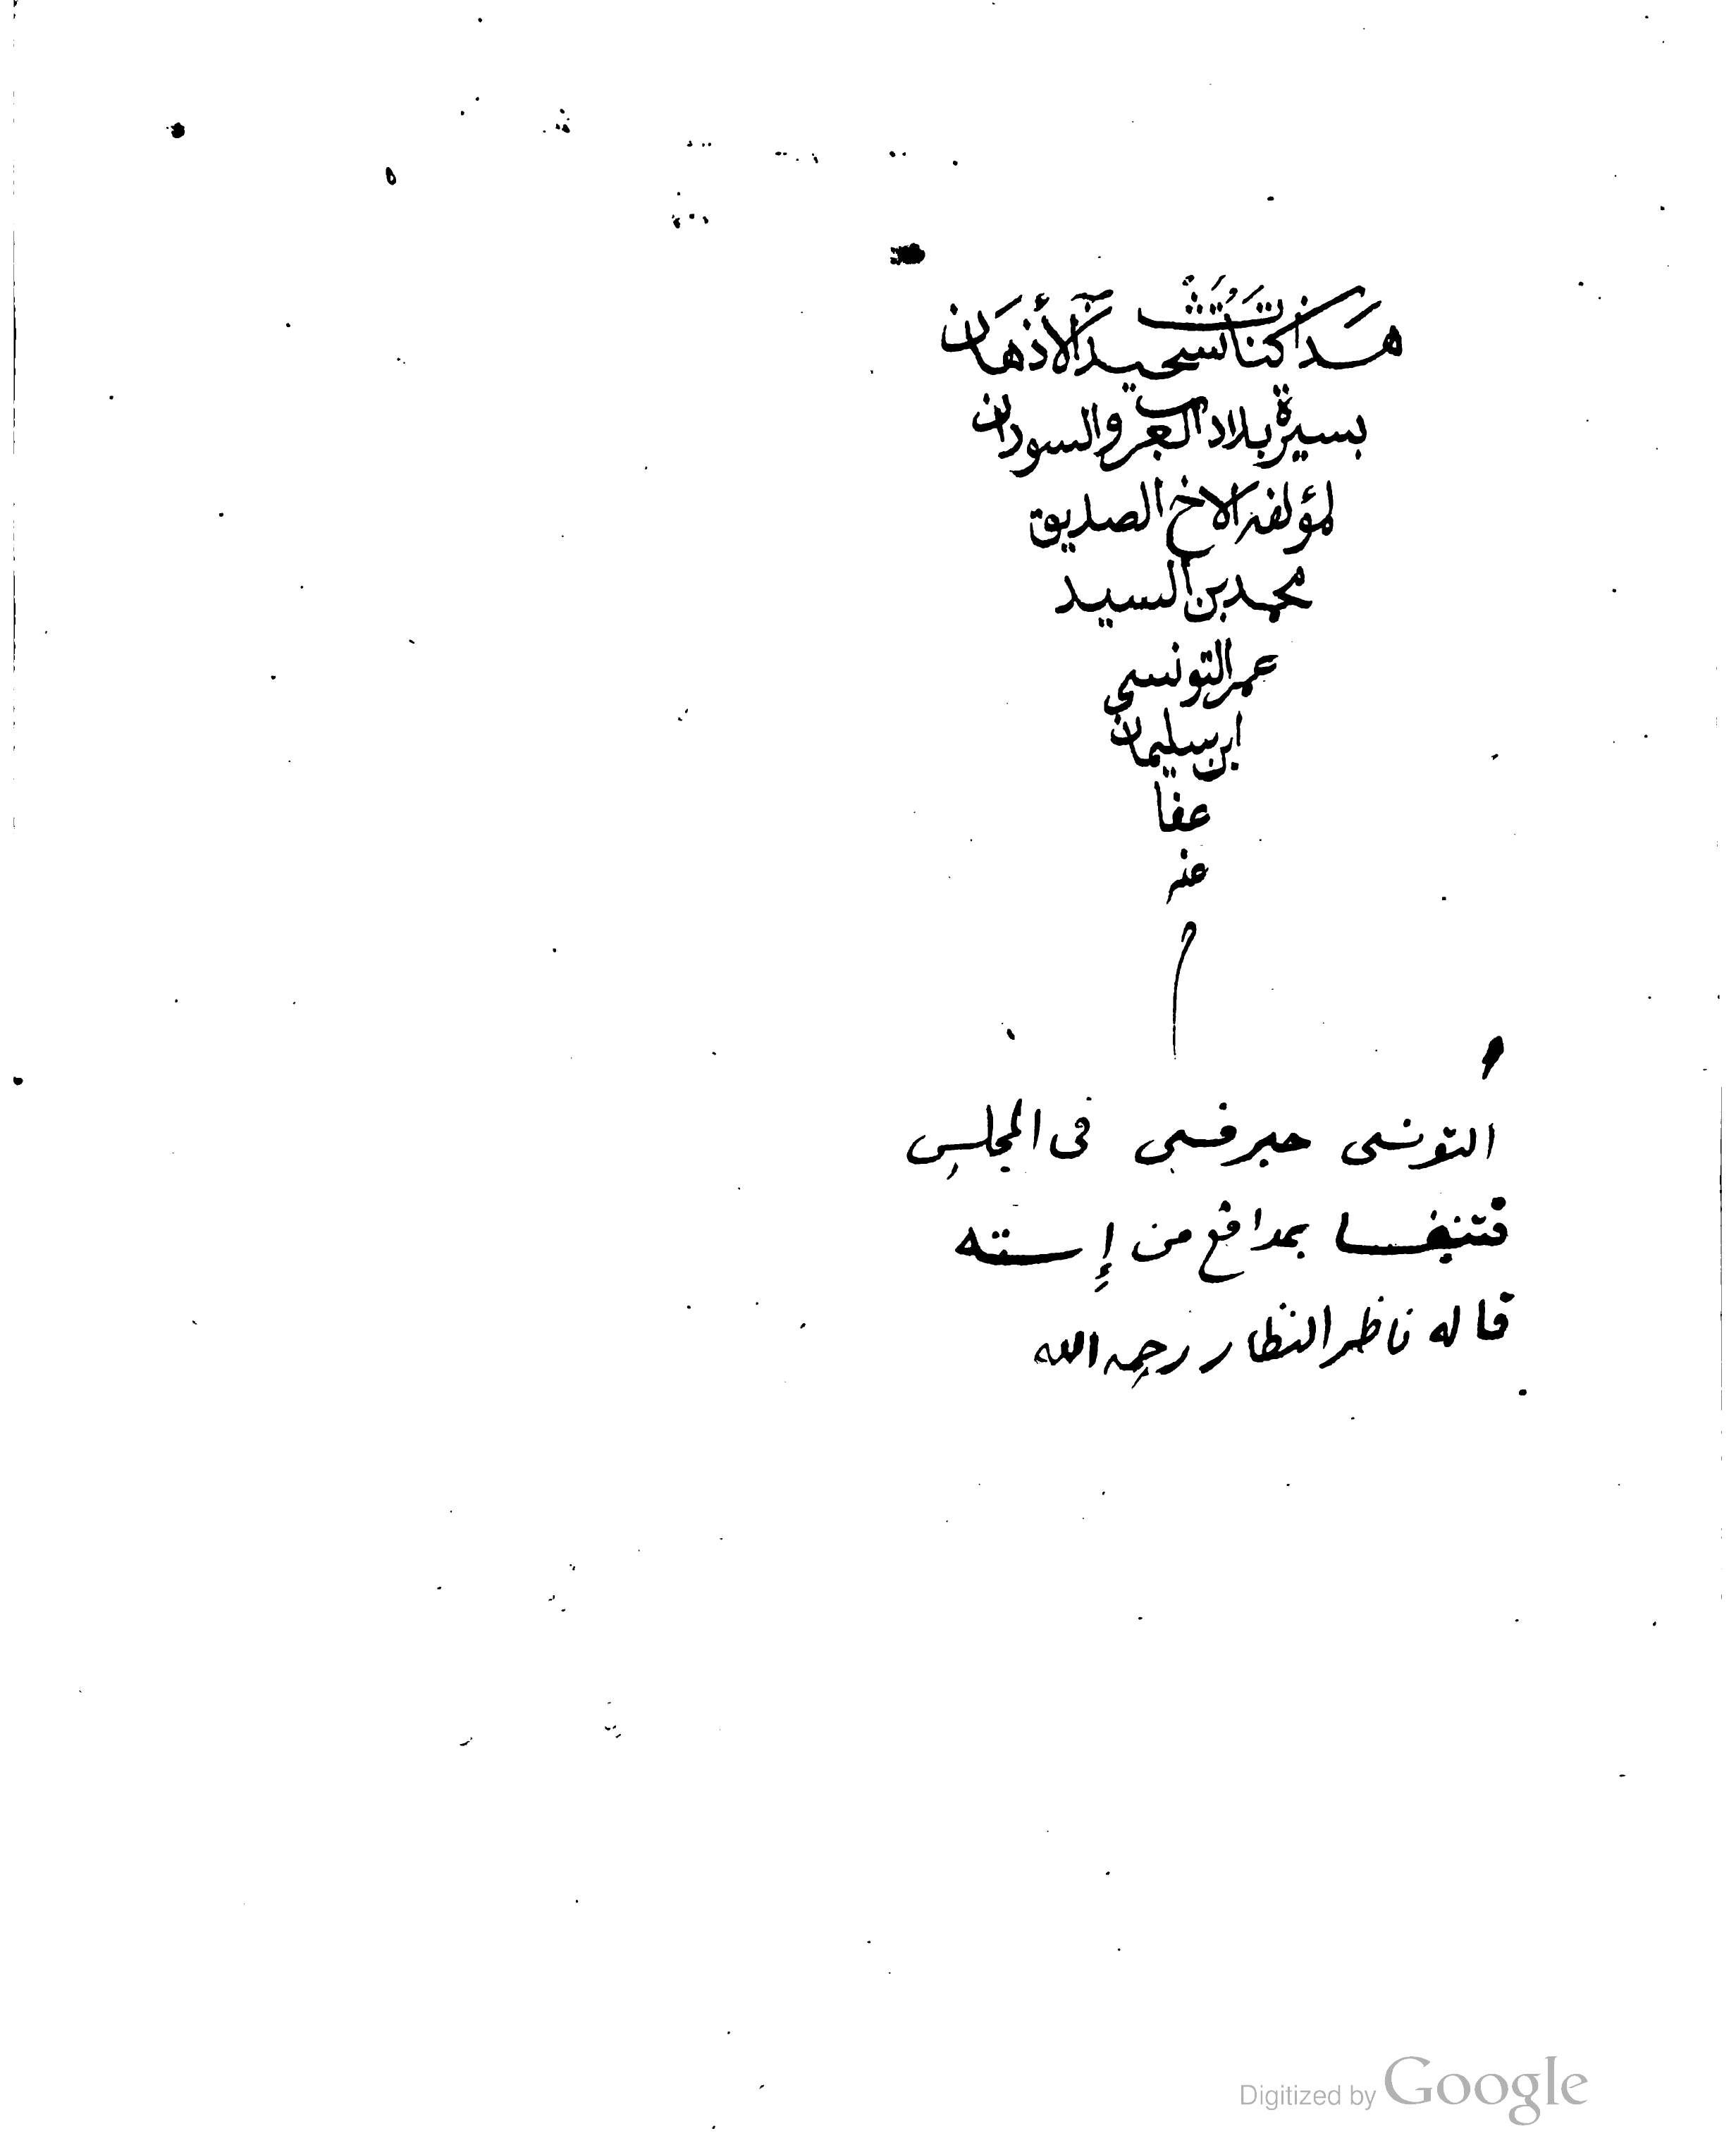 هَذَا كتَابُ تَشْحيذ الأَذهَان
بسيرة بلاد العرب والسودان
لمؤلفه الاخ الصديق
محمد بن السيد
عمر التونسي
ابن سليمان
عفا
عنه
التونسى فى المجلسِ
بمدافع من إِسته
قاله ناظر النظار رحمه الله
Digitized by Google